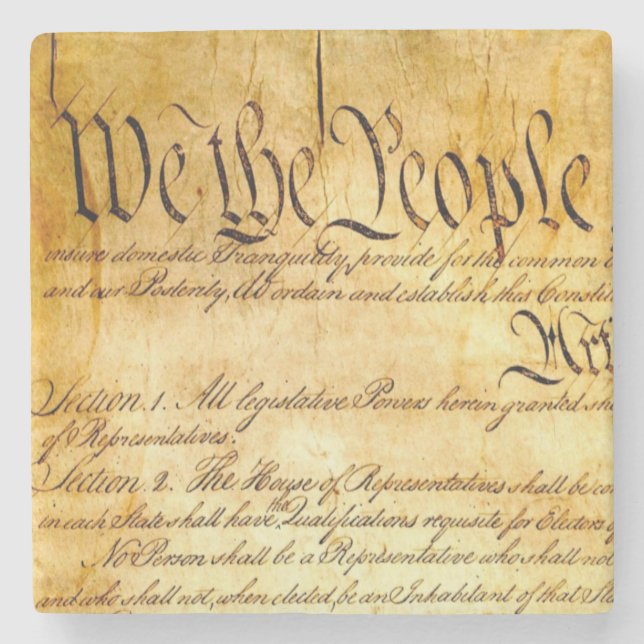 We the People
insure domestic Tranquility, provide for the common
and our Posterity, do ordain and establish this Constitu
Section. 1. All legislative Powers herein granted sha
of Representatives.
Section. 2. The House of Representatives shall be com
in each State shall have the Qualifications requisite for Electors of
No Person shall be a Representative who shall not
and who shall not, when elected, be an Inhabitant of that Sta